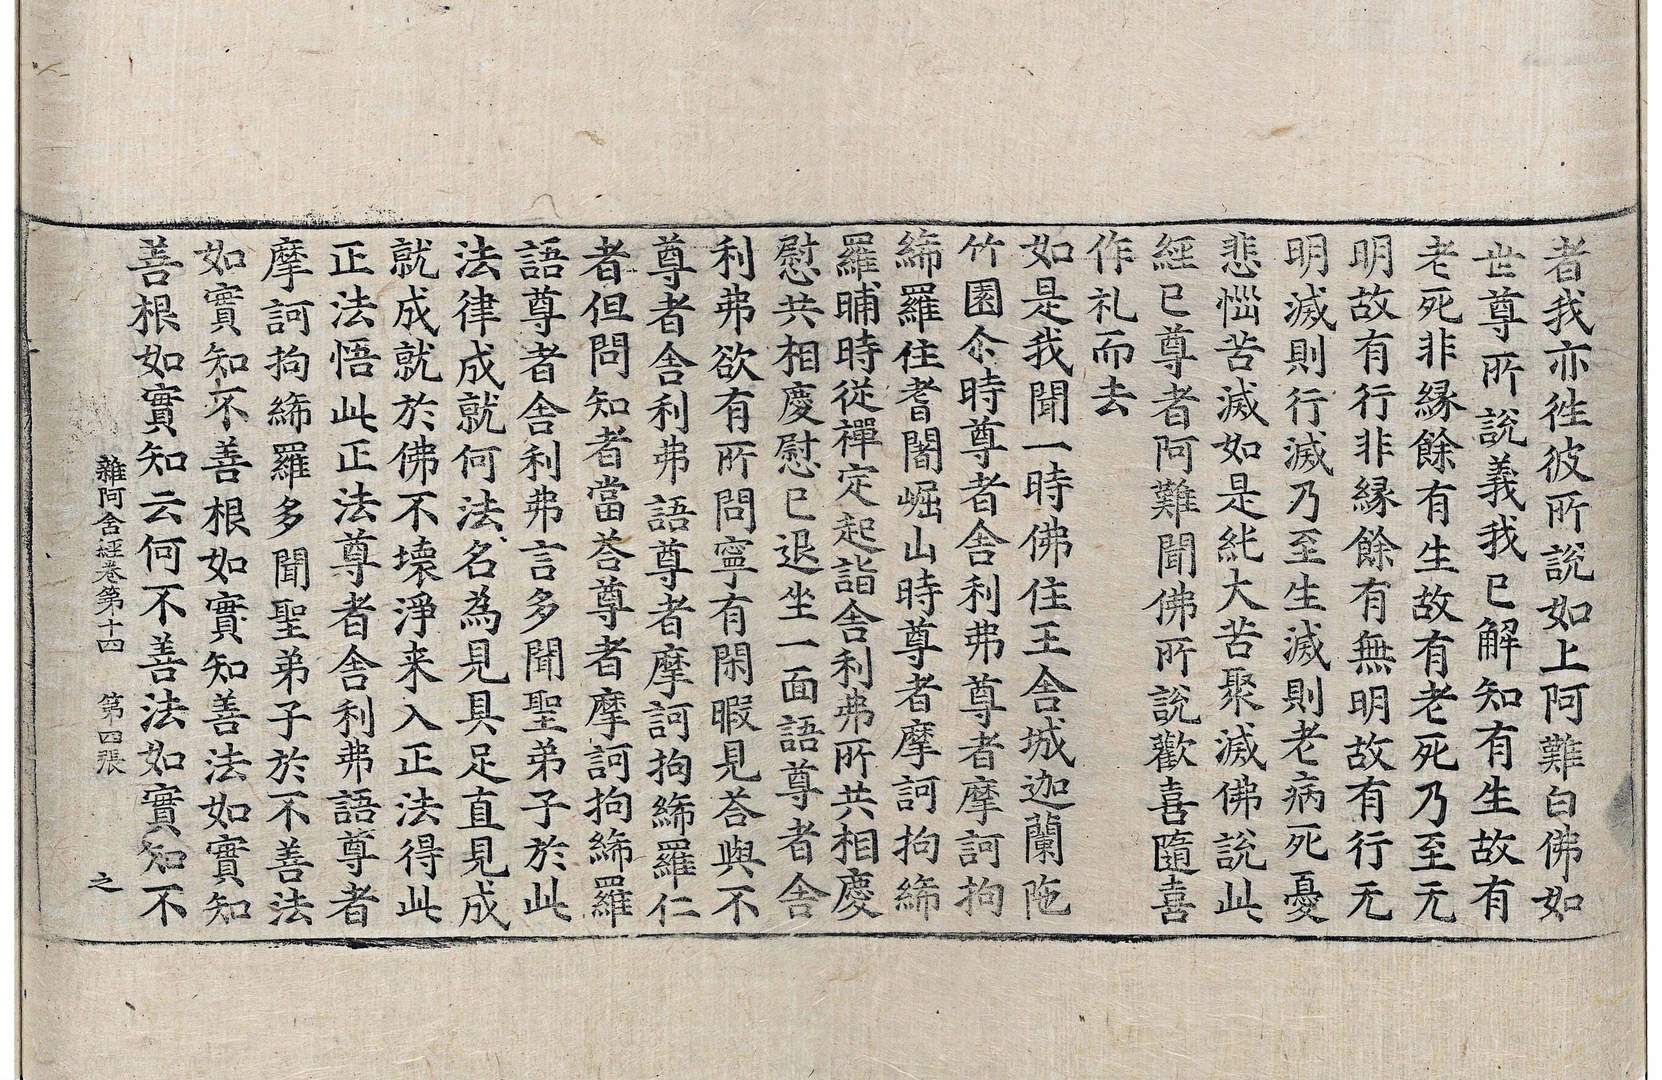 者我亦徃彼所說如上阿難白佛如
世尊所說義我已解知有生故有
老死非緣餘有生故有老死乃至无
明故有行非緣餘有無明故有行无
明滅則行滅乃至生滅則老病死憂
悲惱苦滅如是純大苦聚滅佛說此
經已尊者阿難聞佛所說歡喜隨喜
作礼而去
如是我聞一時佛住王舍城迦蘭陁
竹園尒時尊者舍利弗尊者摩訶拘
絺羅住耆闍崛山時尊者摩訶拘絺
羅晡時從禪定起詣舍利弗所共相慶
慰共相慶慰已退坐一面語尊者舍
利弗欲有所問寧有閑暇見荅與不
尊者舍利弗語尊者摩訶拘絺羅仁
者但問知者當荅尊者摩訶拘絺羅
語尊者舍利弗言多聞聖弟子於此
法律成就何法名為見具足直見成
就成就於佛不壞淨来入正法得此
正法悟此正法尊者舍利弗語尊者
摩訶拘絺羅多聞聖弟子於不善法
如實知不善根如實知善法如實知
善根如實知云何不善法如實知不
雜阿含經卷第十四 第四張 之